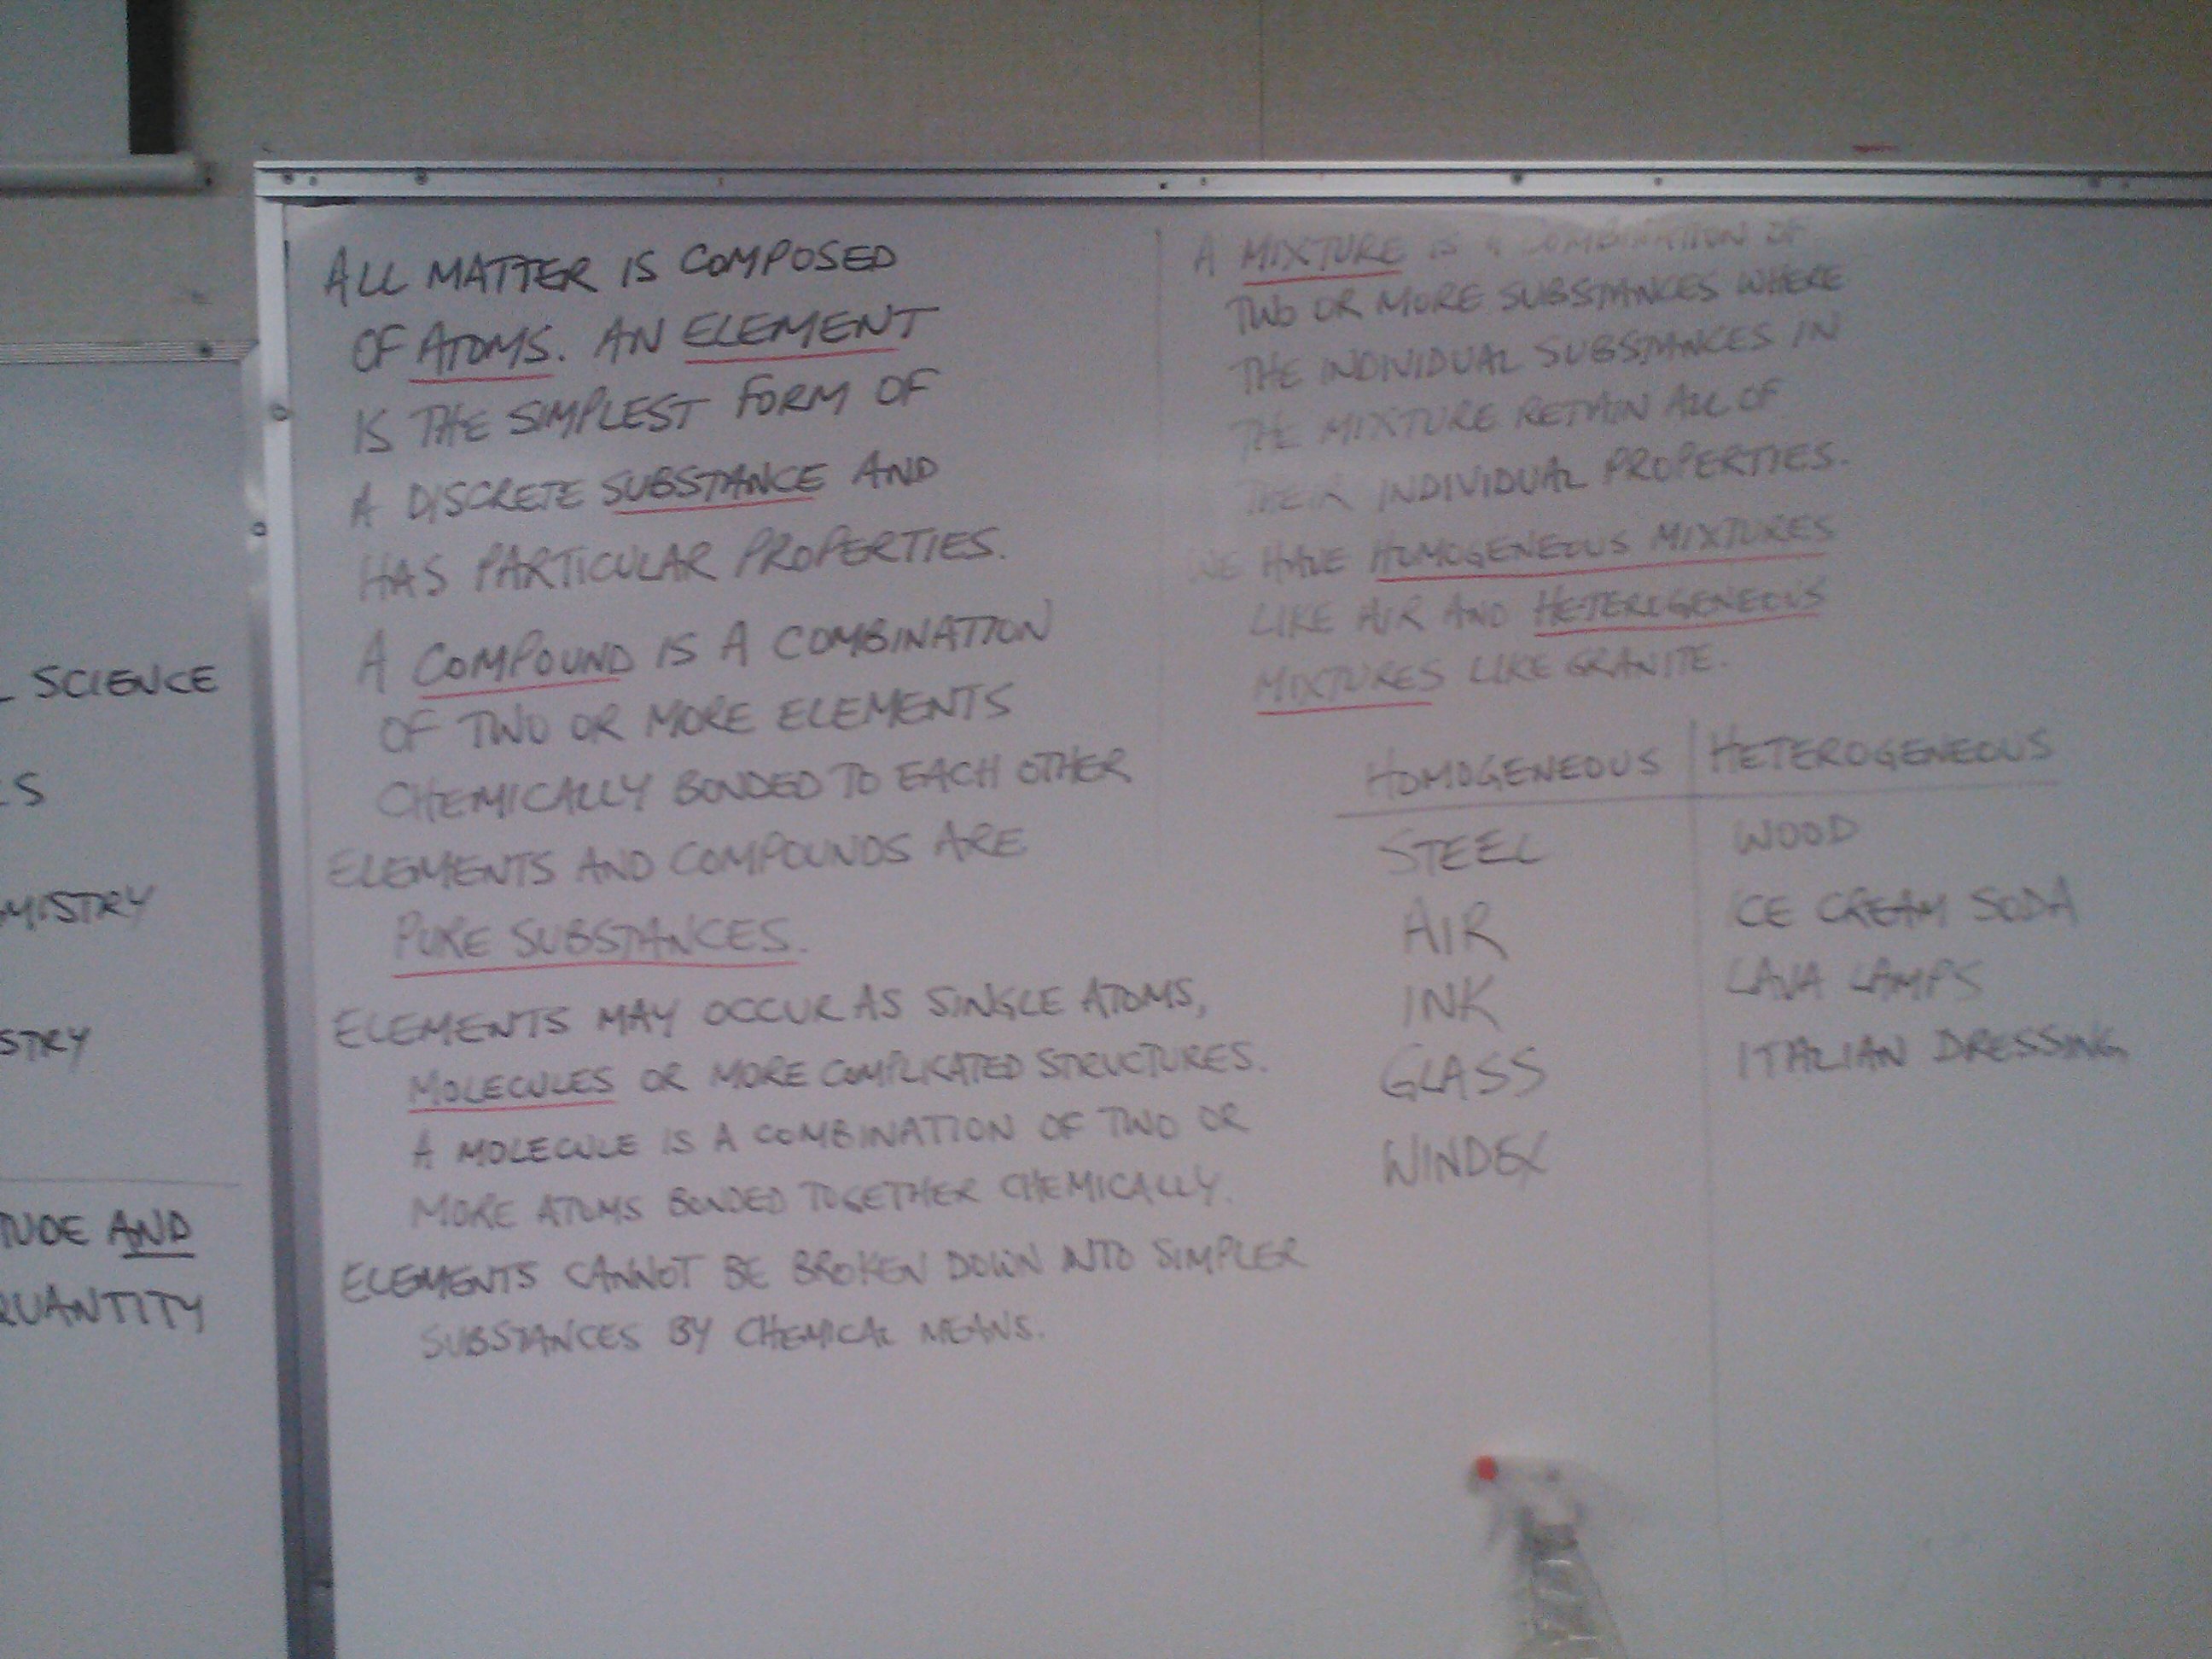 ALL MATTER IS COMPOSED
OF ATOMS. AN ELEMENT
IS THE SIMPLEST FORM OF
A DISCRETE SUBSTANCE AND
HAS PARTICULAR PROPERTIES.
A COMPOUND IS A COMBINATION
OF TWO OR MORE ELEMENTS
CHEMICALLY BONDED TO EACH OTHER
ELEMENTS AND COMPOUNDS ARE
PURE SUBSTANCES.
ELEMENTS MAY OCCUR AS SINGLE ATOMS,
MOLECULES OR MORE COMPLICATED STRUCTURES.
A MOLECULE IS A COMBINATION OF TWO OR
MORE ATOMS BONDED TOGETHER CHEMICALLY.
ELEMENTS CANNOT BE BROKEN DOWN INTO SIMPLER
SUBSTANCES BY CHEMICAL MEANS.
A MIXTURE IS A COMBINATION OF
TWO OR MORE SUBSTANCES WHERE
THE INDIVIDUAL SUBSTANCES IN
THE MIXTURE RETAIN ALL OF
THEIR INDIVIDUAL PROPERTIES.
WE HAVE HOMOGENEOUS MIXTURES
LIKE AIR AND HETEROGENEOUS
MIXTURES LIKE GRANITE.
HOMOGENEOUS HETEROGENEOUS
STEEL WOOD
AIR ICE CREAM SODA
INK LAVA LAMPS
GLASS ITALIAN DRESSING
WINDEX
SCIENCE
AND
QUANTITY